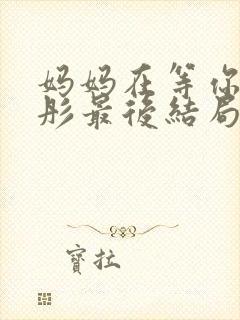 妈妈在等你
彤最後結局
寶拉